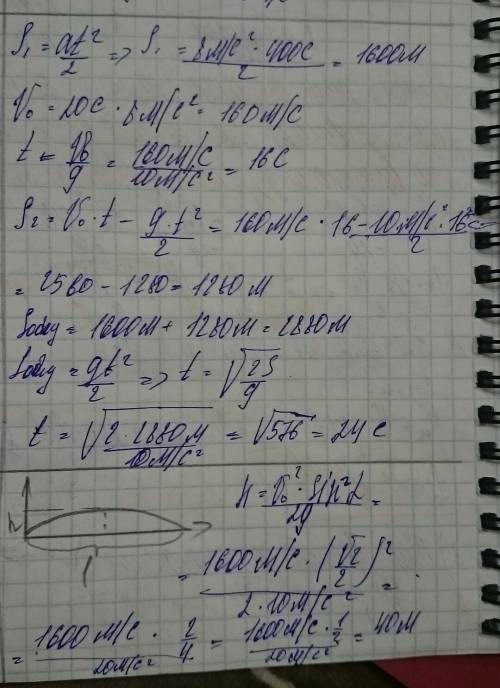 S₁ = at²/2 => S₁ = 8м/с² · 400с/2 = 1600м
V₀ = 20с · 8м/с² = 160м/с
t = V₀/g = 160м/с/10м/с² = 16с
S₂ = V₀·t - g·t²/2 = 160м/с · 16 - 10м/с²·16²с/2
= 2560 - 1280 = 1280м
Sобщ = 1600м + 1280м = 2880м
Sобщ = gt²/2 => t = √2S/g
t = √2·2880м/10м/с² = √576 = 24с
h
l
H = V₀²·sin²α/2g =
= 1600м/с · (√2/2)²/2·10м/с² =
= 1600м/с · 2/4/20м/с² = 1600м/с · 1/2/20м/с² = 40м